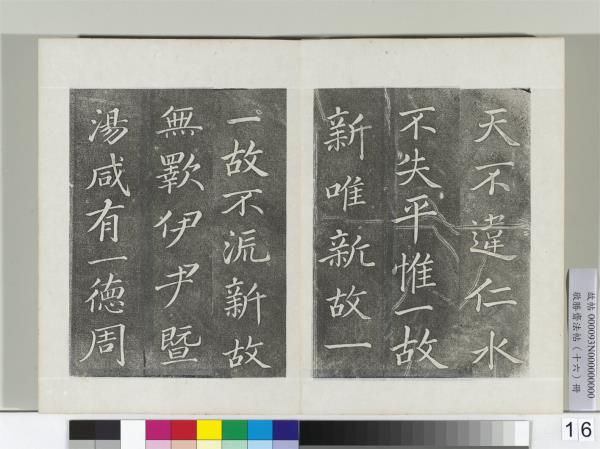 天不違仁水
不失平惟一故
新唯新故一
一故不流新故
無斁伊尹暨
湯咸有一德周
故帖 000093N000000000
敬勝齋法帖（十六）冊
16